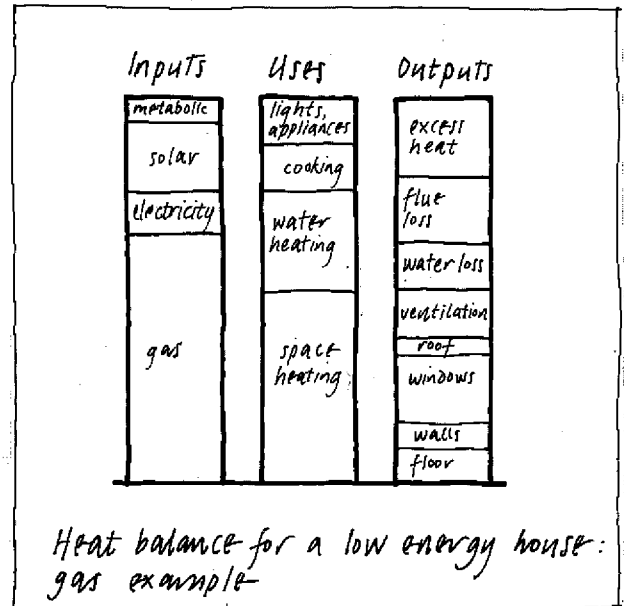 Inputs
Uses
Outputs
metabolic
solar
electricity
gas
lights,
appliances
cooking
water
heating
space
heating
excess
heat
flue
loss
water loss
ventilation
roof
windows
walls
floor
Heat balance for a low energy house:
gas example